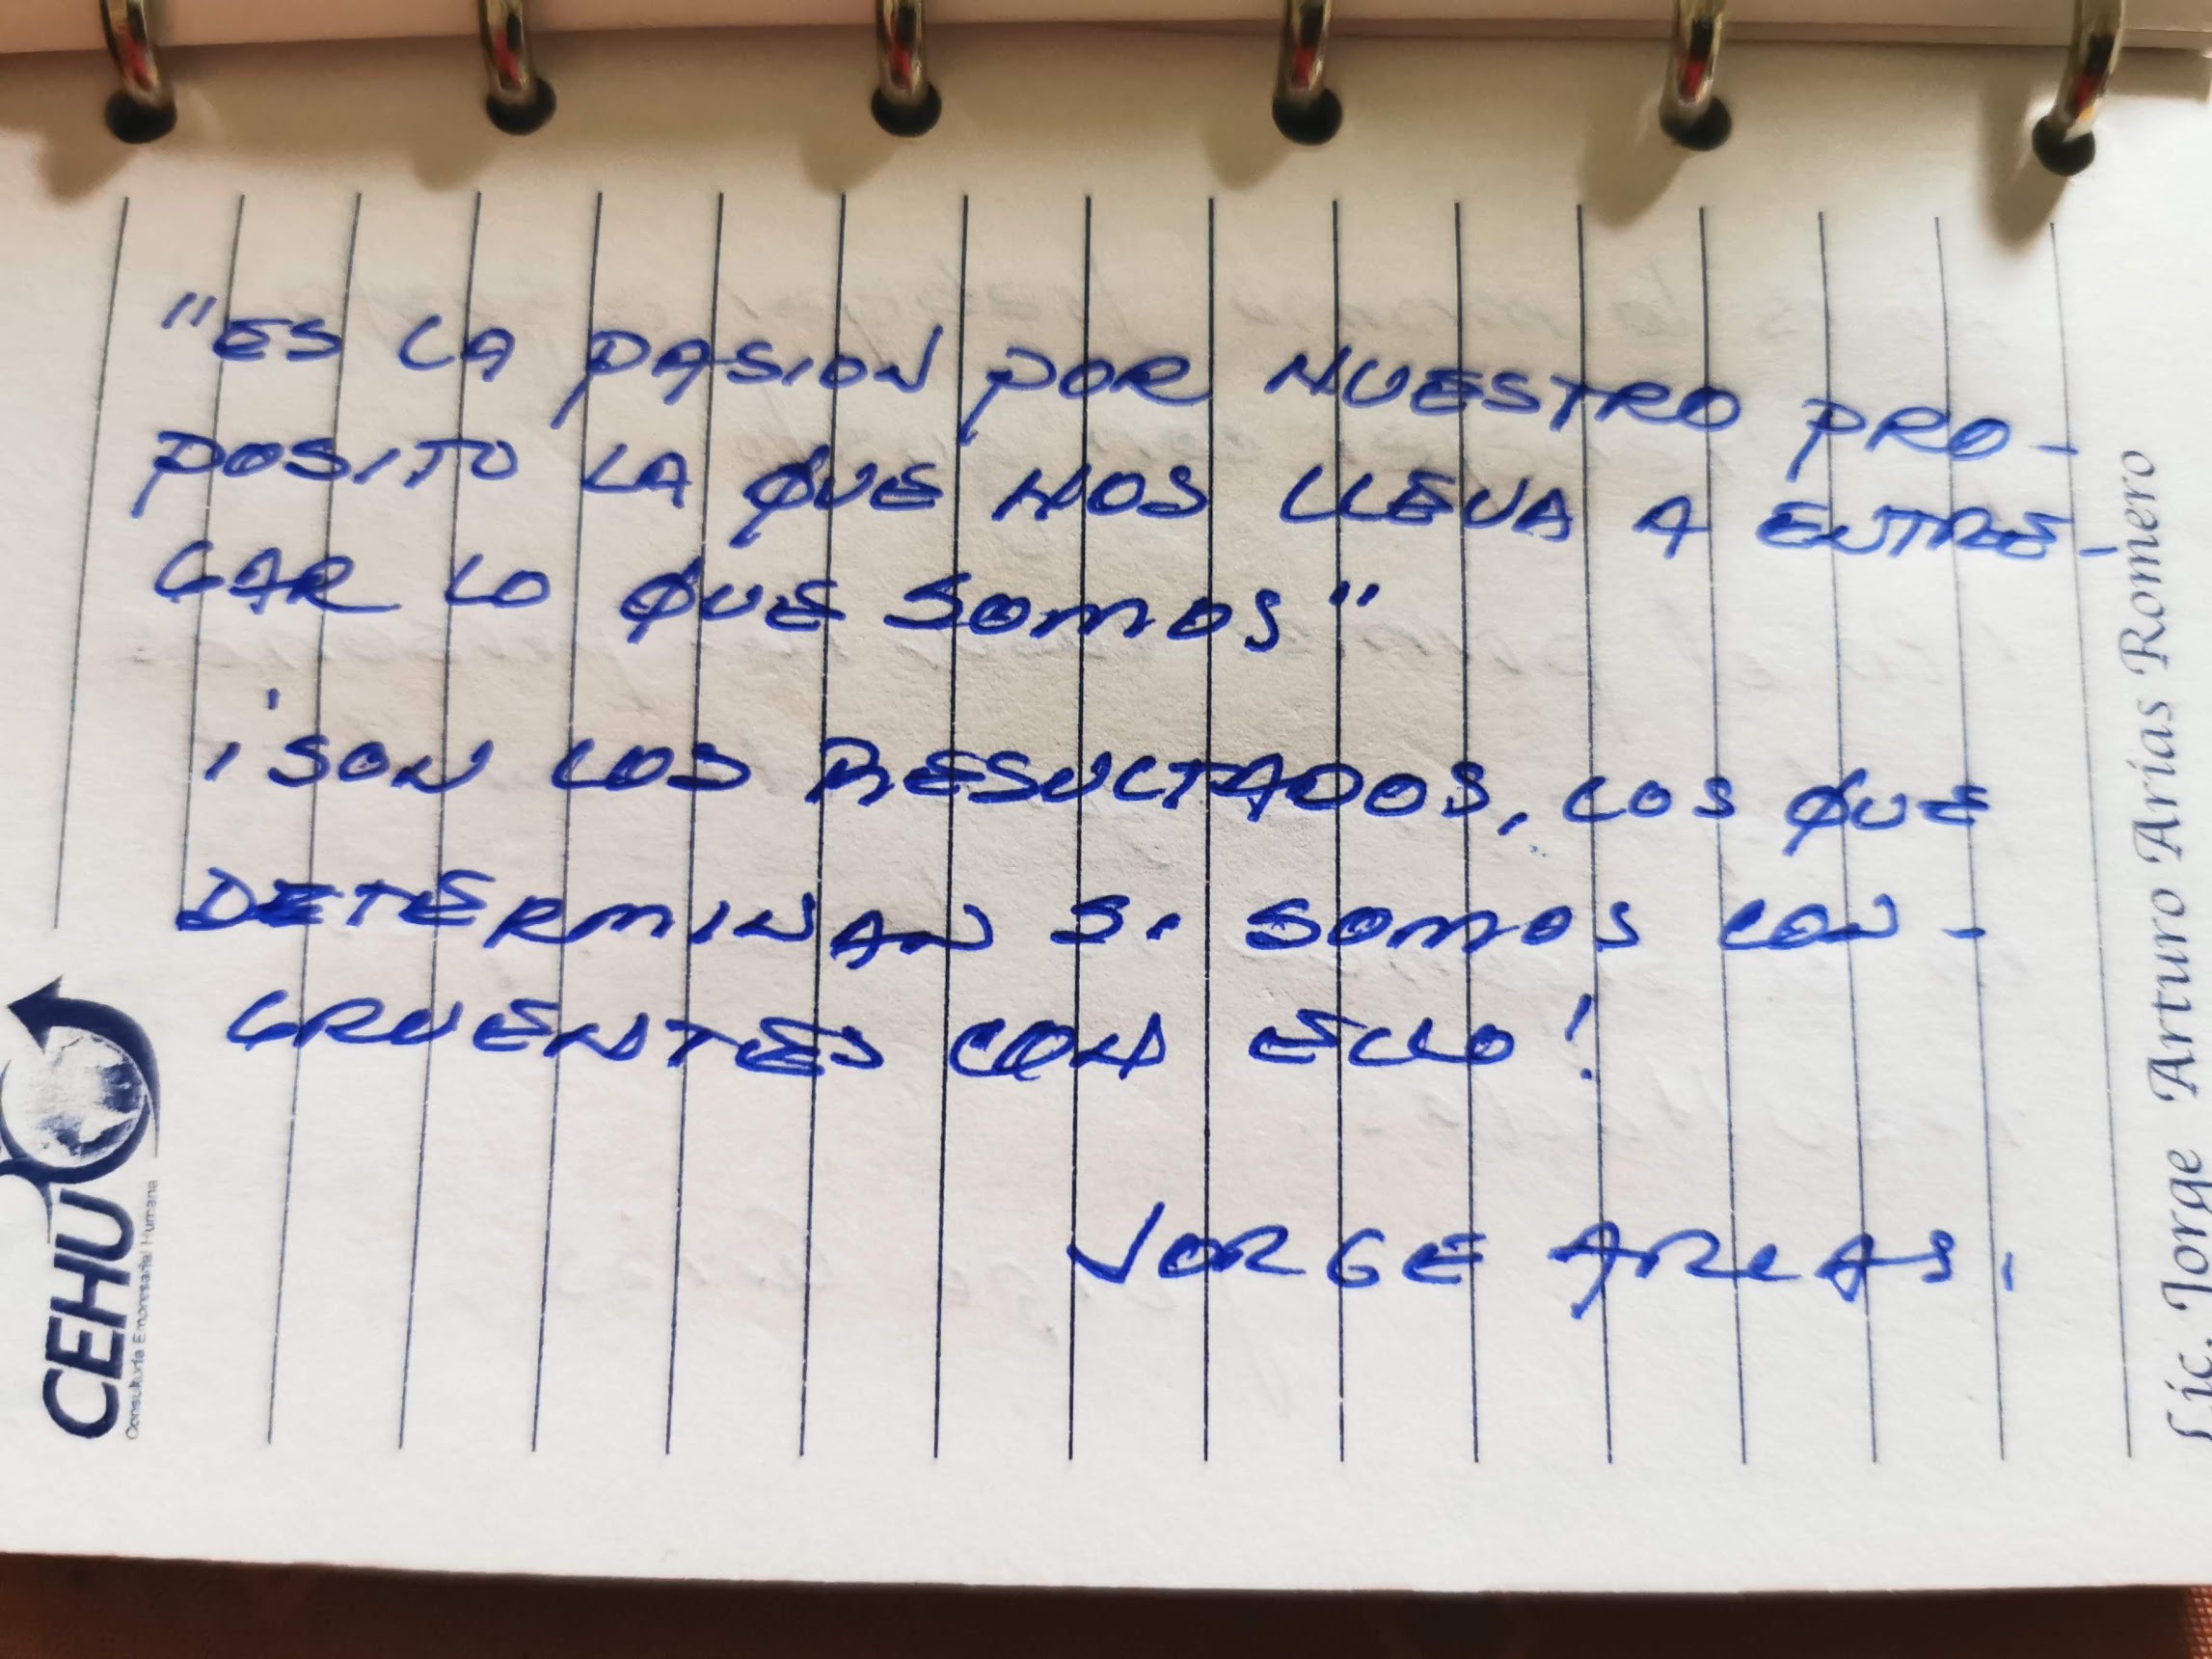 "ES LA PASION POR NUESTRO PRO-
POSITO LA QUE NOS LLEVA A ENTRE-
GAR LO QUE SOMOS"
¡SON LOS RESULTADOS, LOS QUE
DETERMINAN SI SOMOS CON-
GRUENTES CON ELLO!
JORGE ARIAS.
CEHU
Consultoría Empresarial Humana
Lic. Jorge Arturo Arias Romero